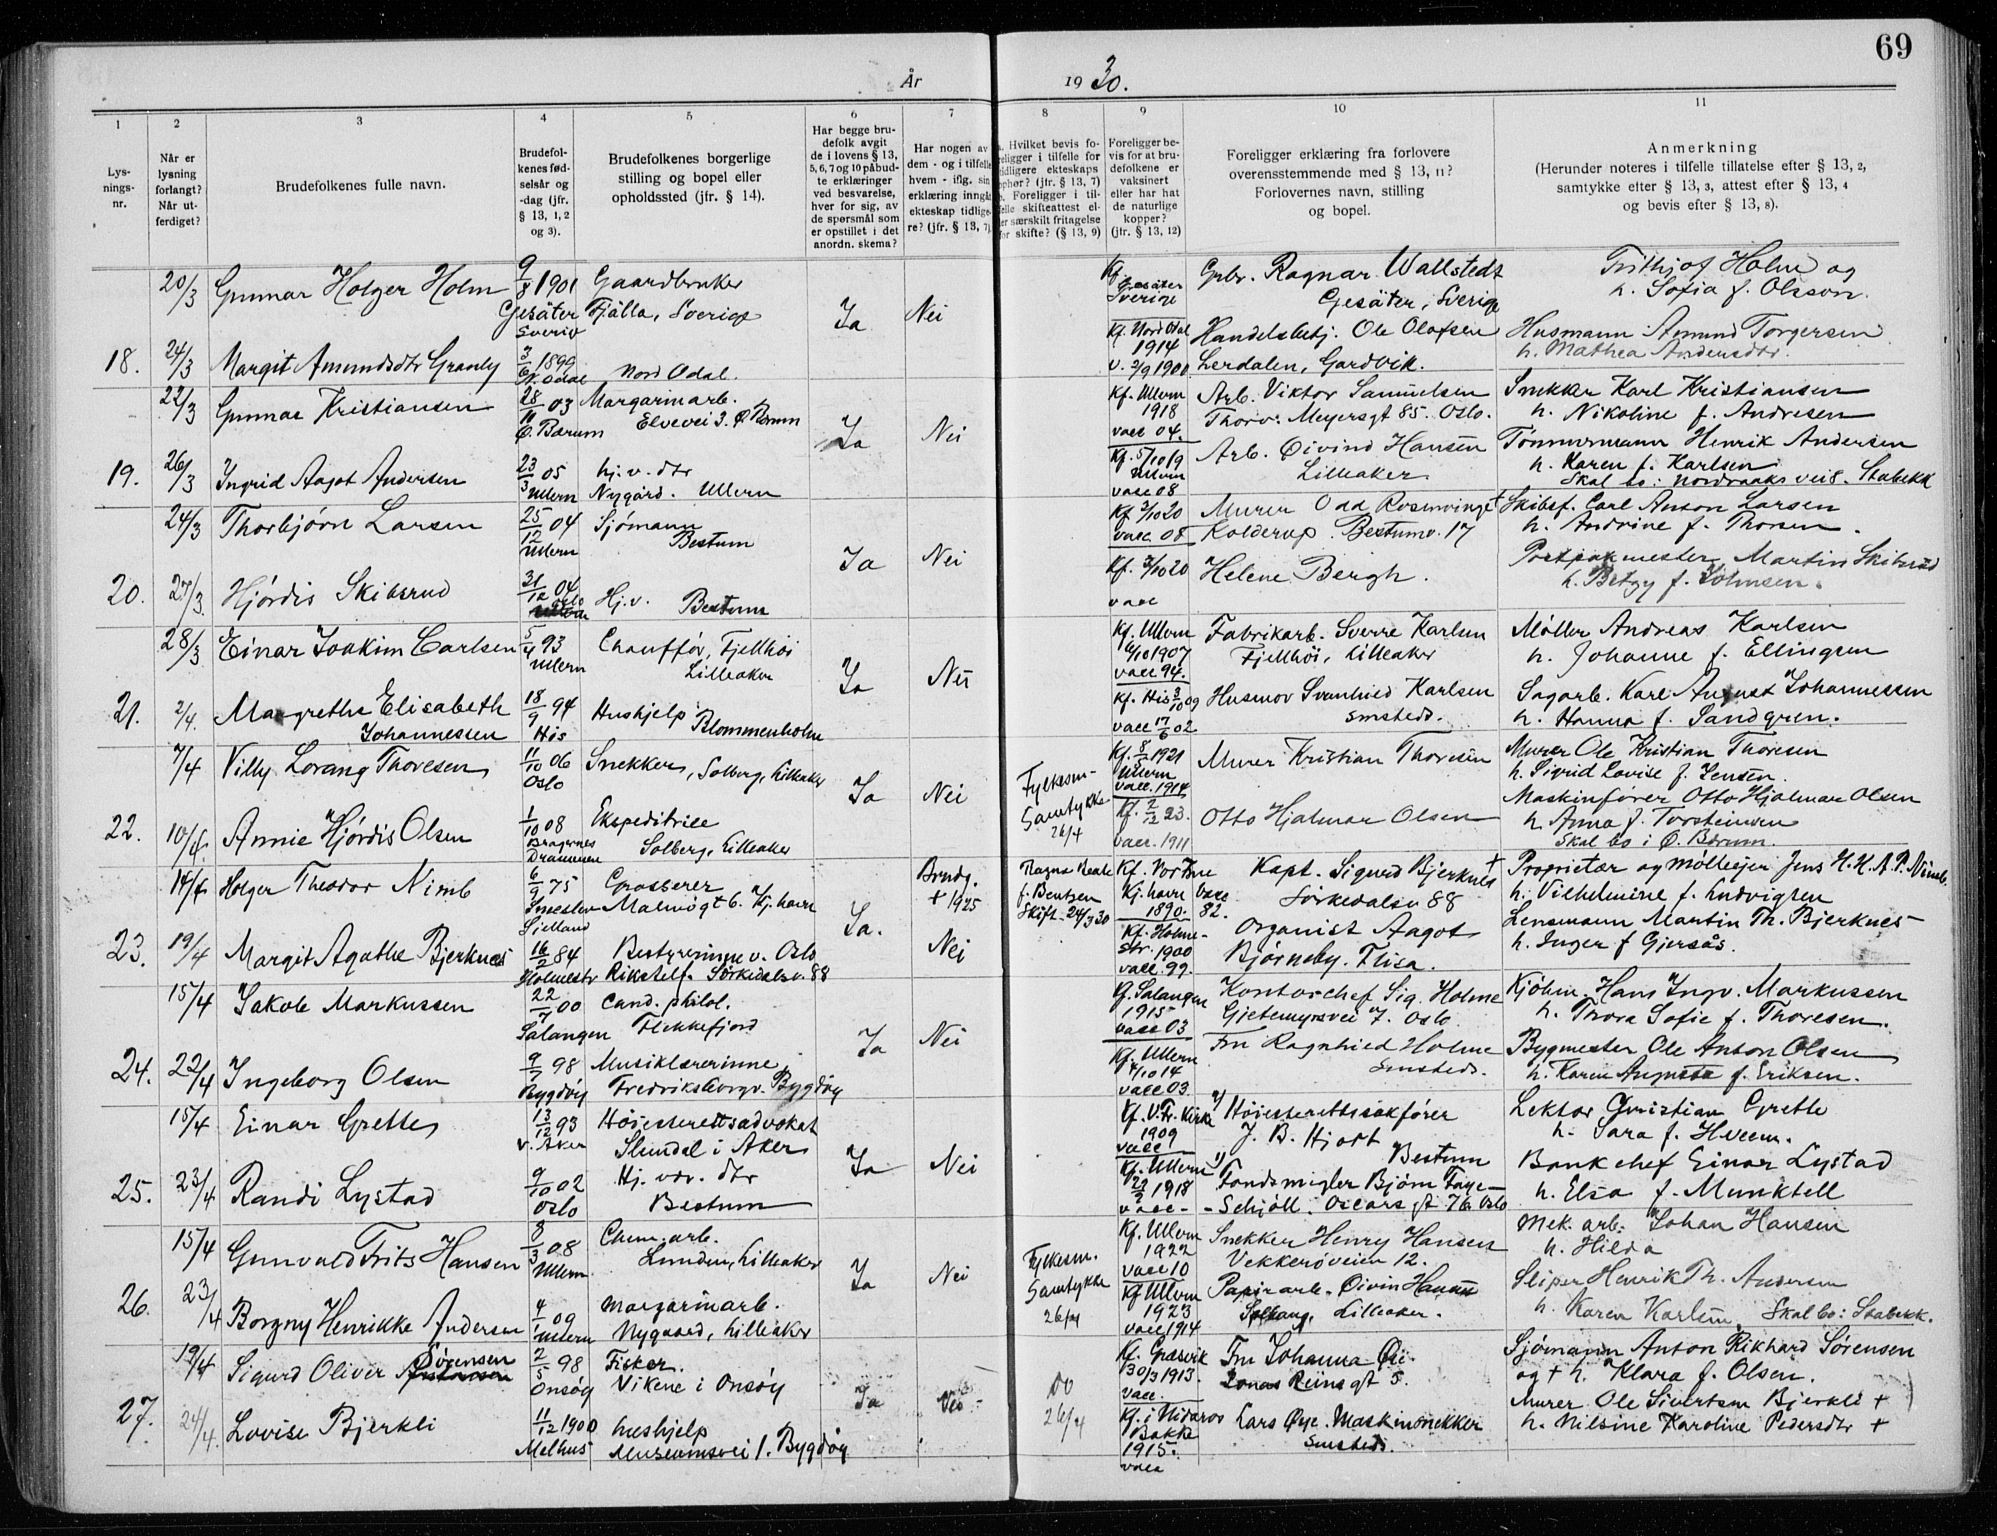 69
År
1930.
1
2
3
4
5
6
7
8
9
10
11
Lys-
nings-
nr.
Når er
lysning
forlangt?
Når ut-
ferdiget?
Brudefolkenes fulle navn.
Brudefol-
kenes fød-
selsår og
-dag (jfr.
§ 13, 1, 2
og 3).
Brudefolkenes borgerlige
stilling og bopel eller
opholdssted (jfr. § 14).
Har begge bru-
defolk avgit
de i lovens § 13,
5, 6, 7 og 10 påbud-
te erklæringer
ved besvarelse,
hver for sig, av
de spørsmål som
er opstillet i det
anordn. skema?
Har nogen av
dem - og i tilfelle
hvem - iflg. sin
erklæring inngå
ekteskap tidlige-
re? (jfr. § 13, 7)
Hvilket bevis fo-
religger i tilfelle for
tidligere ekteskaps
ophør? (jfr. § 13, 7)
b. Foreligger i til-
felle skifteattest el-
ler særskilt fritagelse
for skifte? (§ 13, 9)
Foreligger be-
vis for at bru-
defolkene er
vaksinert
eller har hat
de naturlige
kopper?
(jfr. § 13, 12)
Foreligger erklæring fra forlovere
overensstemmende med § 13, 11?
Forlovernes navn, stilling
og bopel.
Anmerkning
(Herunder noteres i tilfelle tillatelse efter § 13, 2,
samtykke efter § 13, 3, attest efter § 13, 4
og bevis efter § 13, 8).
20/3 Gunnar Holger Holm 9/8 1901 Gaardbruker Kf. Gesäter Grbr. Ragnar Wallstedt Frithjof Holm og
Gesäter Fjälla, Sverige Ja Nei Sverige Gesäter, Sverige h. Sofia f. Olsson.
Kf. Nord Odal Handelsbetj. Ole Olafsen Husmann Amund Torgersen
18. 24/3 Margit Amundsdtr Granly 3/6 1899 1914 h. Mathea Andersdtr.
N. Odal Nord Odal. v. 2/9 1900 Lerdalen, Gardvik.
22/3 Gunnar Kristiansen 28/11 03 Margarinarb. Kf. Ullern Arb. Viktor Samuelsen Snekker Karl Kristiansen
Ø. Bærum Elvevei 3. Ø. Bærum 1918 Thorv. Meyersgt 85. Oslo. h. Nikoline f. Andresen
Ja Nei vacc 04. Arb. Øivind Hansen Tømmermann Henrik Andersen
19. 26/3 Ingrid Aagot Andersen 23/3 05 hj.v. dtr Kf. 5/10 19 Lilleaker h. Karen f. Karlsen
Ullern Nygård. Ullern Ullern vacc 08 Skal bo: Nordraaks vei 8. Stabekk
24/3 Thorbjørn Larsen 25/12 04 Sjømann Kf 2/10 20 Murer Odd Rosenvinge Skibsf. Carl Anton Larsen
Ullern Bestum vacc. 08 Kolderup. Bestumv. 17 h. Andrine f. Thorsen.
Ja Nei
20. 27/3 Hjørdis Skibsrud 31/12 04 Hj.v. Bestum Kf. 3/10 20 Helene Bergh. Martin Skibsrud
Oslo vacc h. Betzy f. Johnsen.
28/3 Einar Joakim Carlsen 5/4 93 Chauffør, Fjellhøi Kf. Ullern Fabrikarb. Sverre Karlsen Møller Andreas Karlsen
Ullern Lilleaker 6/10 1907 Fjellhøi, Lilleaker h. Johanne f. Ellingsen
Ja Nei vacc 94.
21. 2/4 Margrethe Elisabeth 18/9 94 Hushjelp Kf. His 3/10 09 Husmor Svanhild Karlsen Sagarb. Karl August Johannessen
Johannessen His Blommenholm vacc 17/6 02 smsteds. h. Hanna f. Sandgren.
7/4 Villy Lorang Thoresen 11/10 06 Snekker, Solberg, Lilleaker Kf. 8/5 1921 Murer Kristian Thoresen Murer Ole Kristian Thoresen
Oslo Fylkesm- Ullern h. Sigrid Lovise f. Jensen.
Ja Nei Samtykke vacc. 1914 Maskinfører Otto Hjalmar Olsen
22. 10/4 Annie Hjørdis Olsen 1/10 08 Ekspeditrice 26/4 Kf. 2/12 23. Otto Hjalmar Olsen h. Anna f. Torsteinsen
Bragernes Solberg, Lilleaker vacc. 1911 Skal bo i Ø. Bærum.
Drammen
14/4 Holger Theodor Nimb 6/9 75 Grosserer Brudg. Kapt. Sigurd Bjerknes Proprietær og mølleejer Jens H. H. A. P. Nimb.
Malmøgt 6. Kj.havn + 1925 f. Bentzen Kj.havn Vacc Sørkedalsv 88 h. Vilhelmine f. Ludvigsen
Sjelland Ja. Skift. 24/3 30 1890. 82. Lensmann Martin Th. Bjerknes
23. 19/4 Margit Agathe Bjerknes 16/2 84 Bestyrerinne v. Oslo Nei Kf. Holme- Organist Aagot h. Inger f Gjersås.
Holmestr Rikstelf. Sørkedalsv. 88 str. 1900 Bjørneby. Flisa.
vacc. 99.
15/4 Jakob Markussen 22/7 00 Cand. philol. Kf. Salangen Kontorchef Sig. Holme Kjøbm. Hans Ingv. Markussen
Salangen Flekkefjord 1915 Gjetemyrsvei 7. Oslo. h. Thora Sofie f. Thoresen.
Ja Nei vacc 03
24. 22/4 Ingeborg Olsen 9/7 98 Musiklærerinne Kf. Ullern Fru Ragnhild Holme Bygmester Ole Anton Olsen
Bygdøy Fredriksborgv. Bygdøy 4/10 14 Smsteds. h. Karen Augusta f. Eriksen.
vacc 03
15/4 Einar Grette 13/12 93 Høiesterettsadvokat Kf. V. Fr. Kirke Høiesterettssakfører Lektor Christian Grette
V. Aker Slemdal i Aker 1909 J. B. Hjort h. Sara f. Hveem.
Ja Nei vacc Bestum
25. 23/4 Randi Lystad 9/10 02 Hj. vær. dtr Kf. Ullern Fondsmegler Bjørn Faye- Bankchef Einar Lystad
Oslo Bestum 1918 Schjøll. Oscars gt 76 Oslo h. Elsa f. Munktell
vacc-
15/4 Gunvald Frits Hansen 8/3 08 Chem. arb. Kf. Ullern Snekker Henry Hansen Mek. arb. Johan Hansen
Ullern Lunden, Lilleaker Fylkesm. 1922 Vekkerøveien 12. h. Hilda
Ja Nei Samtykke vacc 10
26. 23/4 Borgny Henrikke Andersen 4/1 09 Margarinarb. 26/4 Kf Ullern Papirarb. Øivin Hansen Sliper Henrik Th. Andersen
Ullern Nygaard, Lilleaker 1923 Lilleaker. h. Karen Karlsen. Skal bo: Stabekk.
vacc 1914
19/4 Sigurd Oliver Sørensen 2/5 98 Fisker. Kf. Græsvik Fru Johanna Øie Sjømann Anton Rikhard Sørensen
Onsøy Vikene i Onsøy 30/3 1913. Jonas Reinsgt 5. og + h. Klara f. Olsen.
Ja Nei vacc.
27. 24/4 Lovise Bjerkli 11/12 1900 Hushjelp 26/4 Kf. i Nidaros Lars Øye. Maskinsnekker Murer Ole Sivertsen Bjerkli +
Melhus Museumsvei 1. Bygdøy Bakke Smsteds. h. Nilsine Karoline Pedersdtr +
1915.
vacc